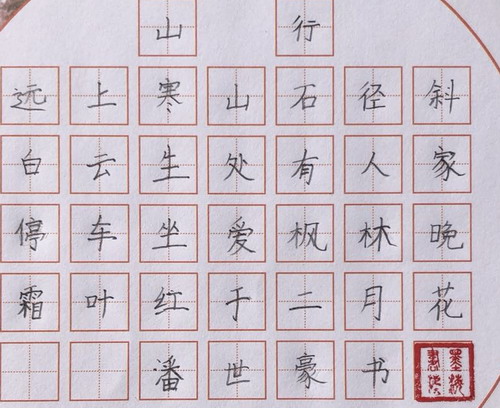 山行
远上寒山石径斜
白云生处有人家
停车坐爱枫林晚
霜叶红于二月花
潘世豪书